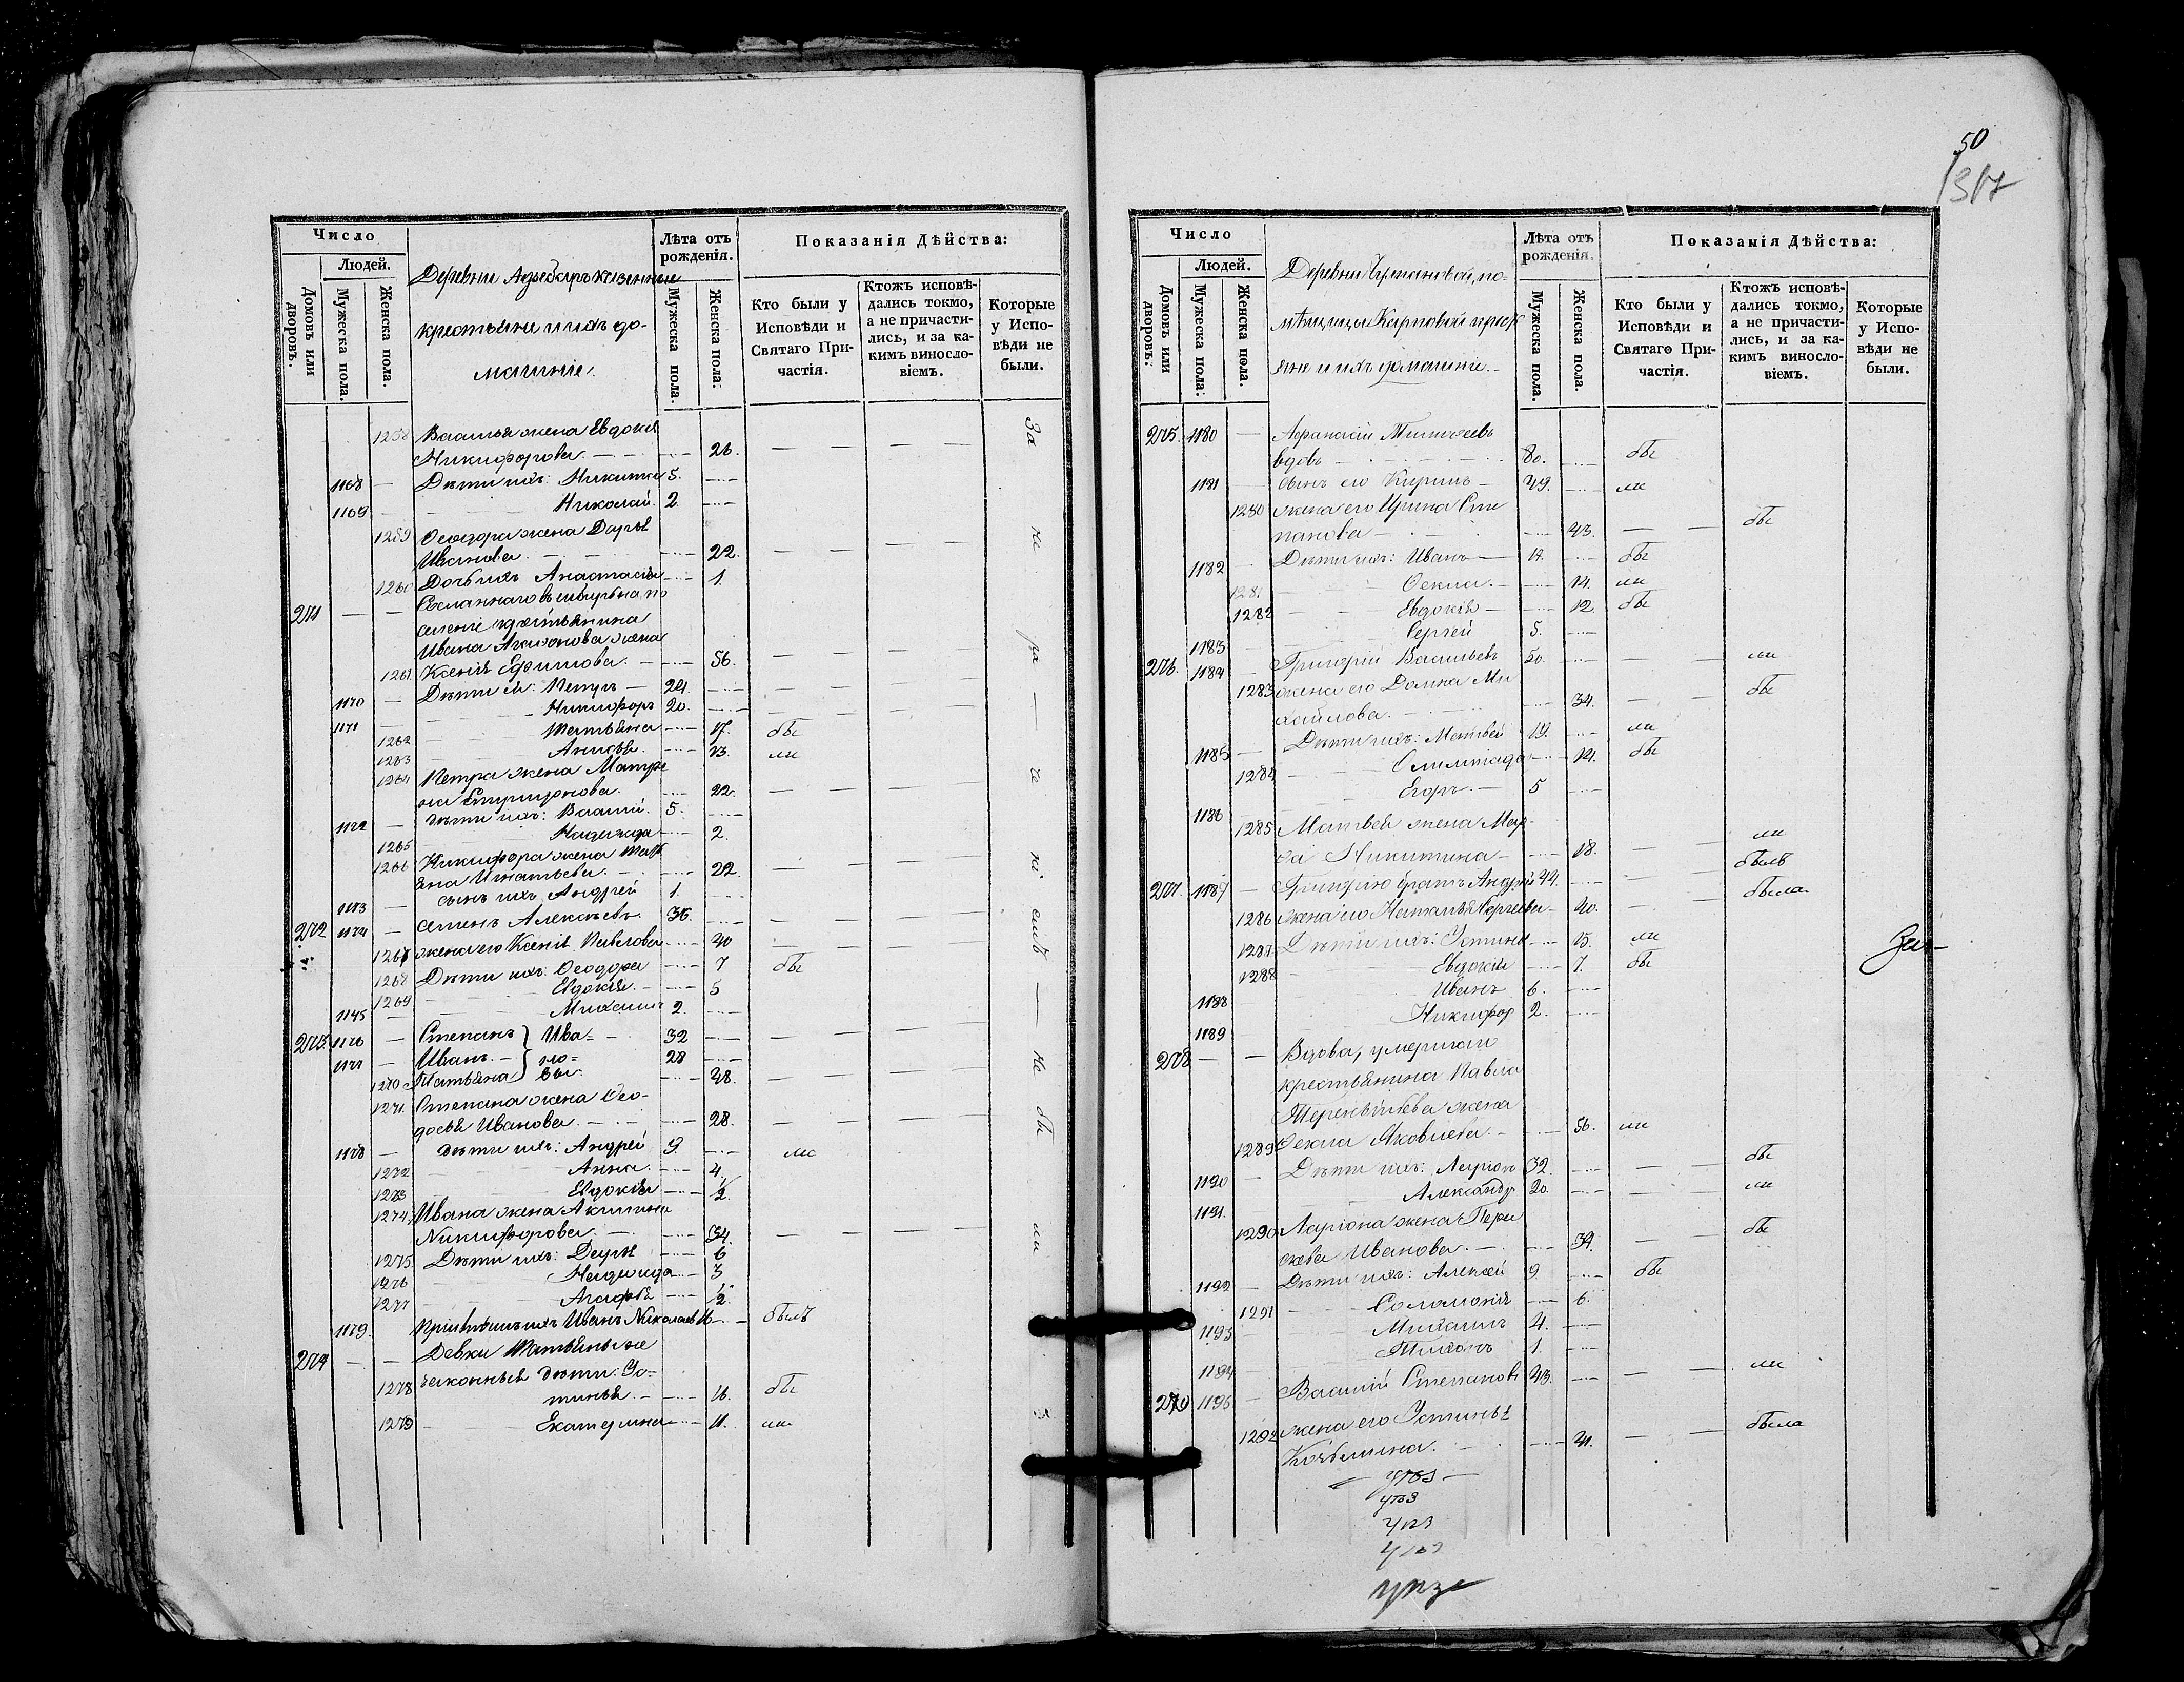 Число
Людей.
Домовъ или дворовъ.
Мужеска пола.
Женска пола.
Деревни казенные
крестьяне и ихъ до-
машніе.
Лѣта отъ рожденія.
Мужеска пола.
Женска пола.
Показанія Дѣйства:
Кто были у Исповѣди и Святаго При-частія.
Ктожъ исповѣ-дались токмо, а не причасти-лись, и за ка-кимъ винослo-віемъ.
Которые у Испо-вѣди не были.
1258 Василья жена Евдокія
Никифорова 26.
1168 — Дѣти ихъ: Никита 5.
1169 — Николай 2.
1259 Ѳеодора жена Дарья
Иванова 22.
1260 Дочь ихъ Анастасія 1.
271 — — Сосланнаго въ сибирь на по
селеніе крестьянина
Ивана жена
1261 Ксенія Ефимова. 56.
1170 — Дѣти ея: Петръ 24.
1171 — Никифоръ 20.
1262 — Татьяна 17. бы
1263 — Анисья 13. ли
1264 Петра жена Матре
на Спиридонова. 22.
1172 — Дѣти ихъ: Василій. 5.
1265 — Надежда 2.
1266 Никифора жена Тать
яна Игнатьева. 22.
1173 — сынъ ихъ Андрей 1.
272 1174 — Семенъ Алексѣевъ 36.
1267 жена его Ксенія Павлова 40
1268 Дѣти ихъ: Ѳеодора 7 бы
1269 — Евдокія. 5 ли
1145 — Михаилъ 2.
273 1176 — Степанъ Ива= 32
1177 — Иванъ. но= 28
1270 Татьяна вы. 48.
1271 Степана жена Ѳео-
досья Иванова. 28.
1178 — Дѣти ихъ: Андрей 9. ли
1272 Анна. 4.
1273 Евдокія 1/2.
1274 Ивана жена Акилина
Никифорова. 34.
1275 Дѣти ихъ: Дарья 6
1276 Надежда 3
1277 Агафья 1/2.
1179. Иванъ Николаевъ 16 былъ
274 — — Девки Татьяны не
законныя дѣти: Ус-
1278 тинья. 16. бы
1279 — Екатерина 11. ли
За не ра че ні емъ — не бы ли
50
317
Число
Людей.
Домовъ или дворовъ.
Мужеска пола.
Женска пола.
Деревни Чумановой, по-
мѣщицы Карповой крест
яне и ихъ домашніе.
Лѣта отъ рожденія.
Мужеска пола.
Женска пола.
Показанія Дѣйства:
Кто были у Исповѣди и Святаго При-частія.
Ктожъ исповѣ-дались токмо, а не причасти-лись, и за ка-кимъ винослo-віемъ.
Которые у Испо-вѣди не были.
275. 1180 — Аѳанасій Тимоѳеевъ
вдовъ 80. бы
1181 — сынъ его Кирилъ 49. ли
1280 жена его Ирина Сте
панова 43. — — бы
1182 — Дѣти ихъ: Иванъ 17. бы
1281 Ѳекла. 14. ли
1282 Евдокія 12. бы
1183 Сергей 5.
276. 1184 — Григорій Васильевъ 50. — — ли
1283 жена его Домна Ми
хайлова. 34. — — бы
1185 — Дѣти ихъ: Матвей 19. ли
1284 Олимпіада 14. бы
1186 Егоръ. 5
1285 Матвея жена Мар-
ѳа Никитина 18. — — ли
277. 1187 — Григорію братъ Андрей 44. — — былъ
1286 жена его Наталья Сергеева 40. — — была
1287 Дѣти ихъ: Устинья 15. ли
1288 Евдокія 7. бы
1188 Иванъ 6.
1189 Никифор 2.
278 — — Вдова, умершаго
крестьянина Павла
Терентьева жена
1289 Ѳекла Яковлева. 56. ли
1190 — Дѣти ихъ: Ларіон 32. — — бы
1191. Александр 20. — — ли
1290 Ларіона жена Пара
скева Иванова. 34. — — бы
1192 — Дѣти ихъ: Алексей 9. бы
1291 Соломонія 6.
1193 Михаилъ 4.
1194 Тихонъ 1.
279 1195 — Василій Степановъ 43. — — ли
1292 жена его Устинья
Козьмина. 41. — — была